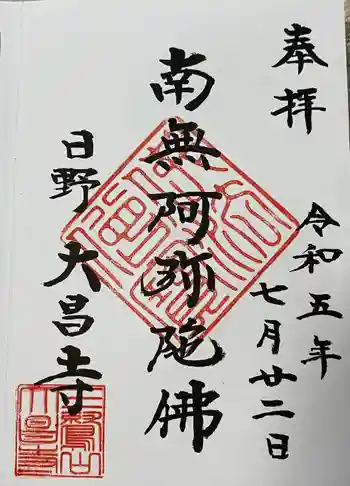 奉拝
令和五年
七月廿二日
南無阿弥陀佛
日野
大昌寺